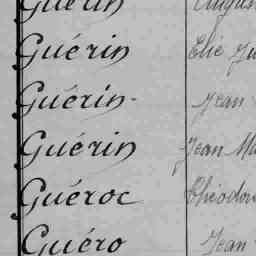 Guérin
Guérin Elie Ju
Guérin- Jean
Guérin Jean Ma
Guéroc Théodor
Guéro Jean